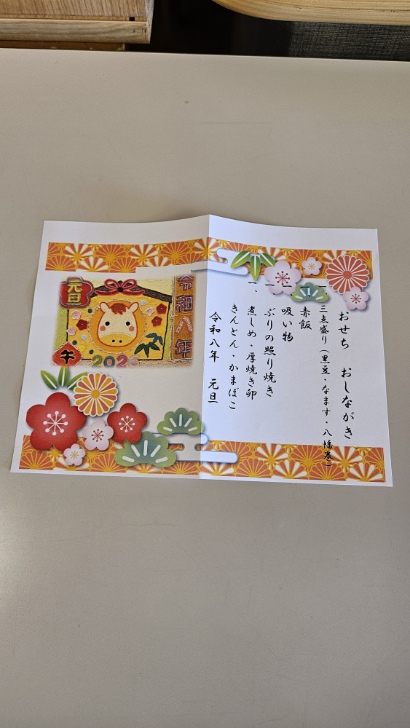 おせち　おしながき
一　三点盛り（黒豆・なます・八幡巻）
一　赤飯
一　吸い物
一．ぶりの照り焼き
一．煮しめ・厚焼き卵
きんとん・かまぼこ
令和八年　元旦
令和八年
元旦
午
202